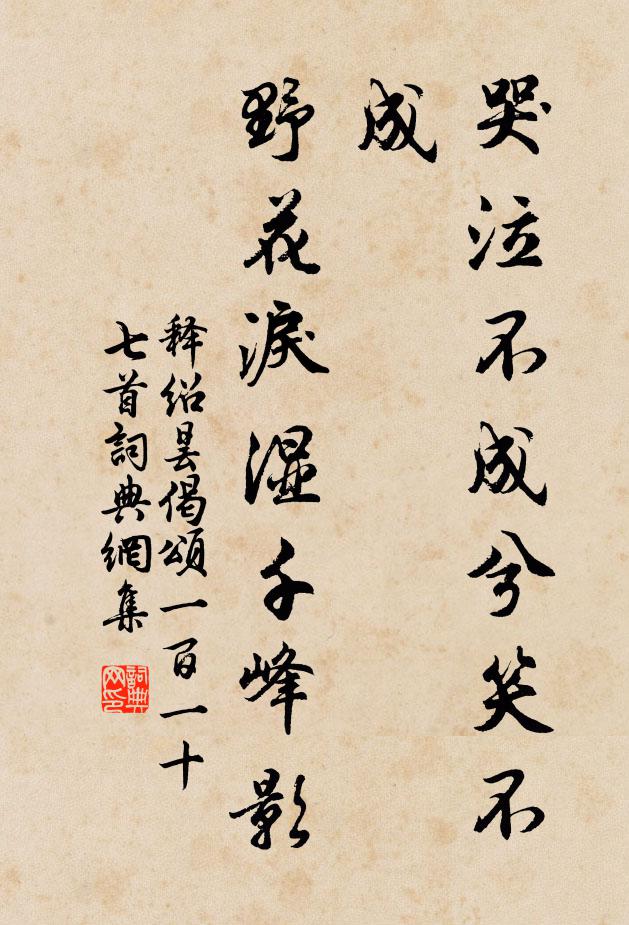 哭泣不成兮笑不
成
野花淚湿千峰影
释绍昙偈頌一百一十
七首詞典網集
詞典网印